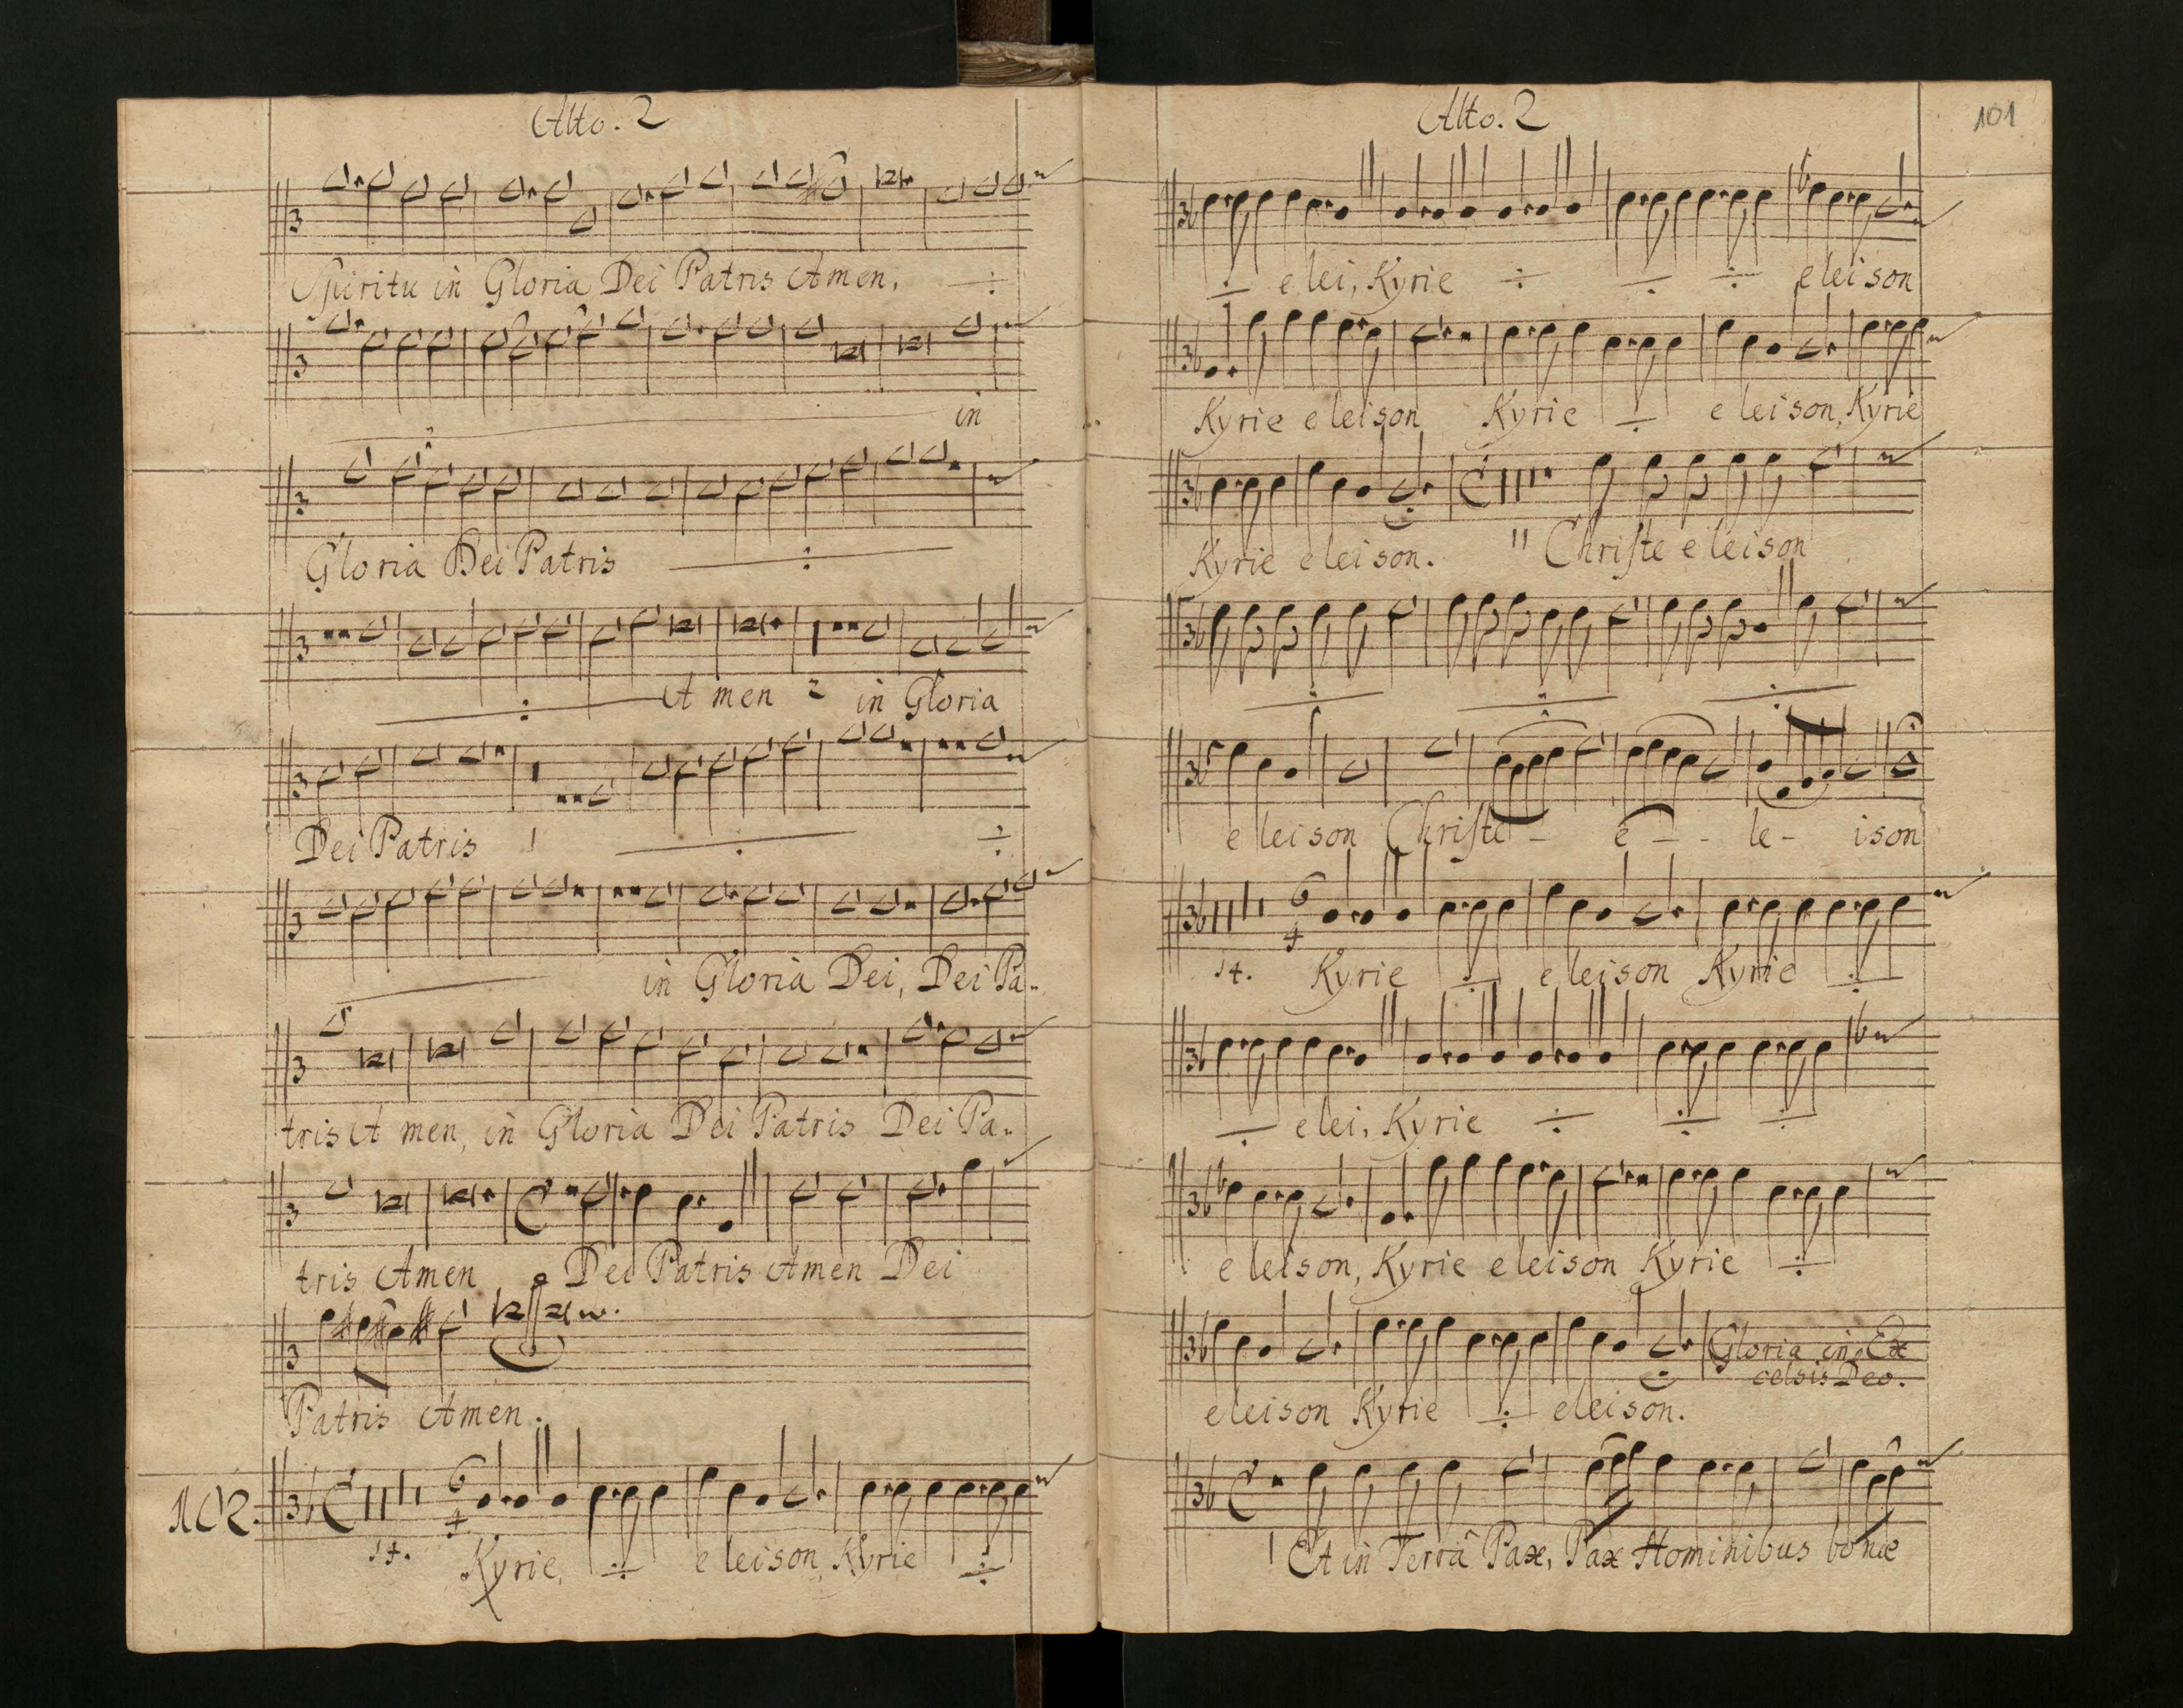 Alto. 2
Spiritu in Gloria Dei Patris Amen, ÷
in
2
Gloria Dei Patris ÷
÷ A men 2 in Gloria
Dei Patris 1 ÷ ÷
in Gloria Dei, Dei Pa-
tris A men, in Gloria Dei Patris Dei Pa-
tris Amen Dei Patris Amen Dei
Patris Amen.
102.
14. Kyrie, ÷ eleison, Kyrie ÷
Alto. 2
101
÷ elei, Kyrie ÷ ÷ ÷ eleison
Kyrie eleison Kyrie ÷ eleison, Kyrie
Kyrie eleison. 11 Christe eleison
÷ ÷ ÷
eleison Christe - e - - le - ison
14. Kyrie ÷ eleison Kyrie ÷
÷ elei, Kyrie ÷ ÷ ÷
eleison, Kyrie eleison Kyrie ÷
Gloria in Ex
celsis Deo.
eleison Kyrie ÷ eleison.
1 Et in Terrâ Pax, Pax Hominibus bonæ